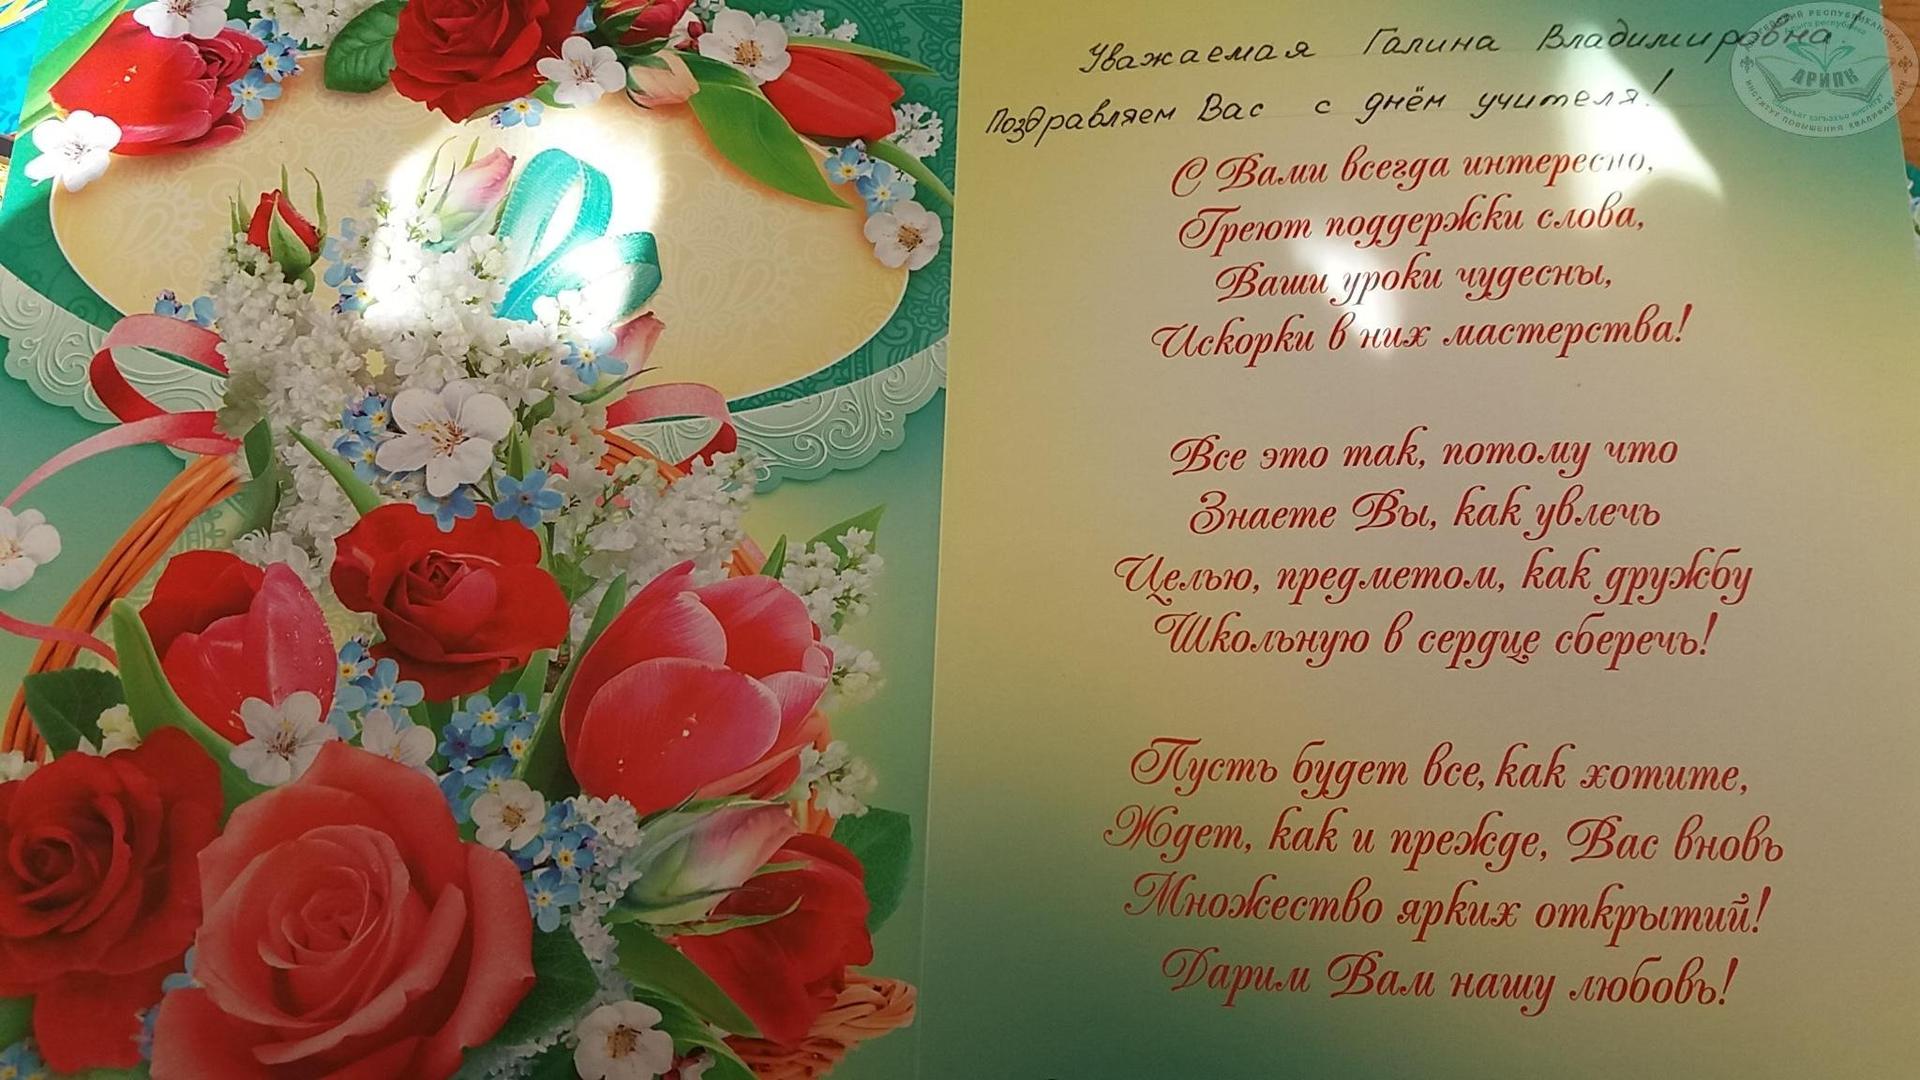 Уважаемая Галина Владимировна!
Поздравляем Вас с днём учителя!
С Вами всегда интересно,
Греют поддержки слова,
Ваши уроки чудесны,
Искорки в них мастерства!
Все это так, потому что
Знаете Вы, как увлечь
Целью, предметом, как дружбу
Школьную в сердце сберечь!
Пусть будет все, как хотите,
Ждет, как и прежде, Вас вновь
Множество ярких открытий!
Дарим Вам нашу любовь!
РЕСПУБЛИКАНСКИЙ
АРИПК
ИНСТИТУТ ПОВЫШЕНИЯ КВАЛИФИКАЦИИ